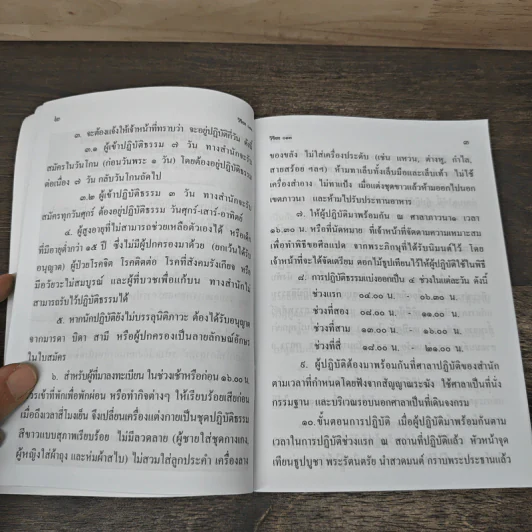 ๒
๓. จะต้องแจ้งให้เจ้าหน้าที่ทราบว่า จะอยู่ปฏิบัติกี่วัน ดังนี้
๓.๑ ผู้เข้าปฏิบัติธรรม ๗ วัน ทางสำนักจะรับ
สมัครในวันโกน (ก่อนวันพระ ๑ วัน) โดยต้องอยู่ปฏิบัติธรรม
ต่อเนื่อง ๗ วัน กลับวันโกนถัดไป
๓.๒ ผู้เข้าปฏิบัติธรรม ๓ วัน ทางสำนักจะรับ
สมัครทุกวันศุกร์ ต้องอยู่ปฏิบัติธรรม วันศุกร์-เสาร์-อาทิตย์
๔. ผู้สูงอายุที่ไม่สามารถช่วยเหลือตัวเองได้ หรือเด็ก
ที่มีอายุต่ำกว่า ๑๕ ปี ซึ่งไม่มีผู้ปกครองมาด้วย (ยกเว้นได้รับ
อนุญาต) ผู้ป่วยโรคจิต โรคติดต่อ โรคที่สังคมรังเกียจ หรือ
มีอวัยวะไม่สมบูรณ์ และผู้ที่บวชเพื่อแก้บน ทางสำนักไม่
สามารถรับไว้ปฏิบัติธรรมได้
๕. หากนักปฏิบัติยังไม่บรรลุนิติภาวะ ต้องได้รับอนุญาต
จากมารดา บิดา สามี หรือผู้ปกครองเป็นลายลักษณ์อักษร
ในใบสมัคร
๖. สำหรับผู้ที่มาลงทะเบียน ในช่วงเช้าหรือก่อน ๑๖.๐๐ น.
เข้าที่พักเพื่อพักผ่อน หรือทำกิจต่างๆ ให้เรียบร้อยเสียก่อน
เมื่อถึงเวลาสี่โมงเย็น จึงเปลี่ยนเครื่องแต่งกายเป็นชุดปฏิบัติธรรม
สีขาวแบบสุภาพเรียบร้อย ไม่มีลวดลาย (ผู้ชายใส่ชุดกางเกง,
ผู้หญิงใส่ผ้าถุง และห่มผ้าสไบ) ไม่สวมใส่ลูกประคำ เครื่องราง
๓
ของขลัง ไม่ใส่เครื่องประดับ (เช่น แหวน, ต่างหู, กำไล,
สายสร้อย ฯลฯ) ห้ามทาเล็บทั้งเล็บมือและเล็บเท้า ไม่ใช้
เครื่องสำอาง ไม่ทาแป้ง เมื่อแต่งชุดขาวแล้วห้ามออกไปนอก
เขตภาวนา และห้ามไปรับประทานอาหาร
๗. ให้ผู้ปฏิบัติมาพร้อมกัน ณ ศาลาภาวนา๑ เวลา
๑๖.๓๐ น. หรือที่นัดหมาย ที่เจ้าหน้าที่จัดตามความเหมาะสม
เพื่อทำพิธีขอศีลแปด จากพระภิกษุที่ได้รับนิมนต์ไว้ โดย
เจ้าหน้าที่จะได้จัดเตรียม ดอกไม้ธูปเทียนไว้ให้ผู้ปฏิบัติใช้ในพิธี
๘. การปฏิบัติธรรมแบ่งออกเป็น ๔ ช่วงในแต่ละวัน ดังนี้
ช่วงแรก ๐๔.๐๐ น. ๐๖.๓๐ น.
ช่วงที่สอง ๐๘.๐๐ น. ๑๑.๐๐ น.
ช่วงที่สาม ๑๓.๐๐ น. ๑๖.๐๐ น.
ช่วงที่สี่ ๑๘.๐๐ น. ๒๑.๐๐ น.
๙. ผู้ปฏิบัติต้องมาพร้อมกันที่ศาลาปฏิบัติของสำนัก
ตามเวลาที่กำหนดโดยฟังจากสัญญาณระฆัง ใช้ศาลาเป็นที่นั่ง
กรรมฐาน และบริเวณรอบนอกศาลาเป็นที่เดินจงกรม
๑๐. ขั้นตอนการปฏิบัติ เมื่อผู้ปฏิบัติมาพร้อมกันตาม
เวลาในการปฏิบัติช่วงแรก ณ สถานที่ปฏิบัติแล้ว หัวหน้าจุด
เทียนธูปบูชา พระรัตนตรัย นำสวดมนต์ กราบพระประธานแล้ว